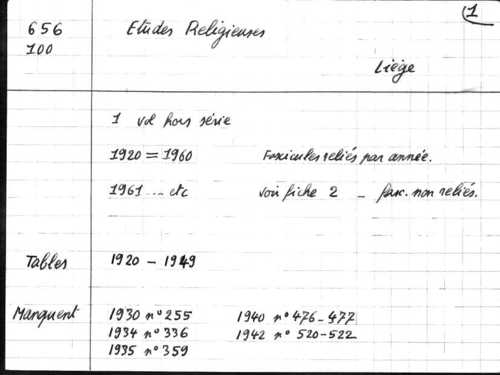 1
656 Etudes Religieuses
100
Liège
1 vol hors série
1920 = 1960 Fascicules reliés par année.
1961 ... etc voir fiche 2 - fasc. non reliés.
Tables 1920 - 1949
Manquent 1930 n° 255 1940 n° 476-477
1934 n° 336 1942 n° 520-522
1935 n° 359